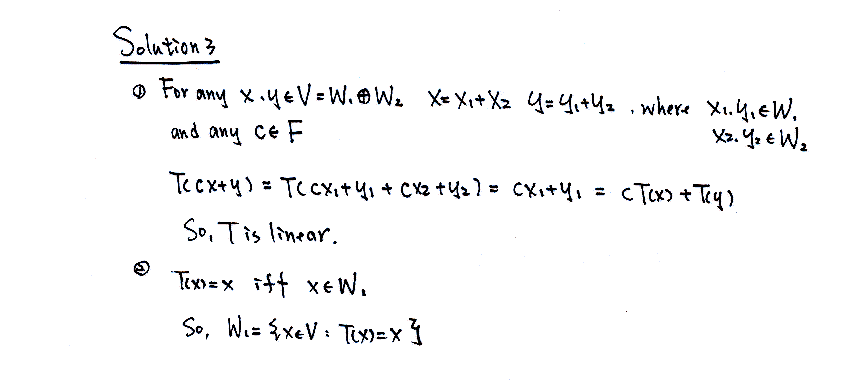 Solution 3
① For any x.y∈V=W₁⊕W₂ x=x₁+x₂ y=y₁+y₂ , where x₁.y₁∈W₁
and any c∈F x₂.y₂∈W₂
T(cx+y) = T(cx₁+y₁+cx₂+y₂) = cx₁+y₁ = cT(x)+T(y)
So, T is linear.
② T(x)=x iff x∈W₁
So, W₁={x∈V : T(x)=x}